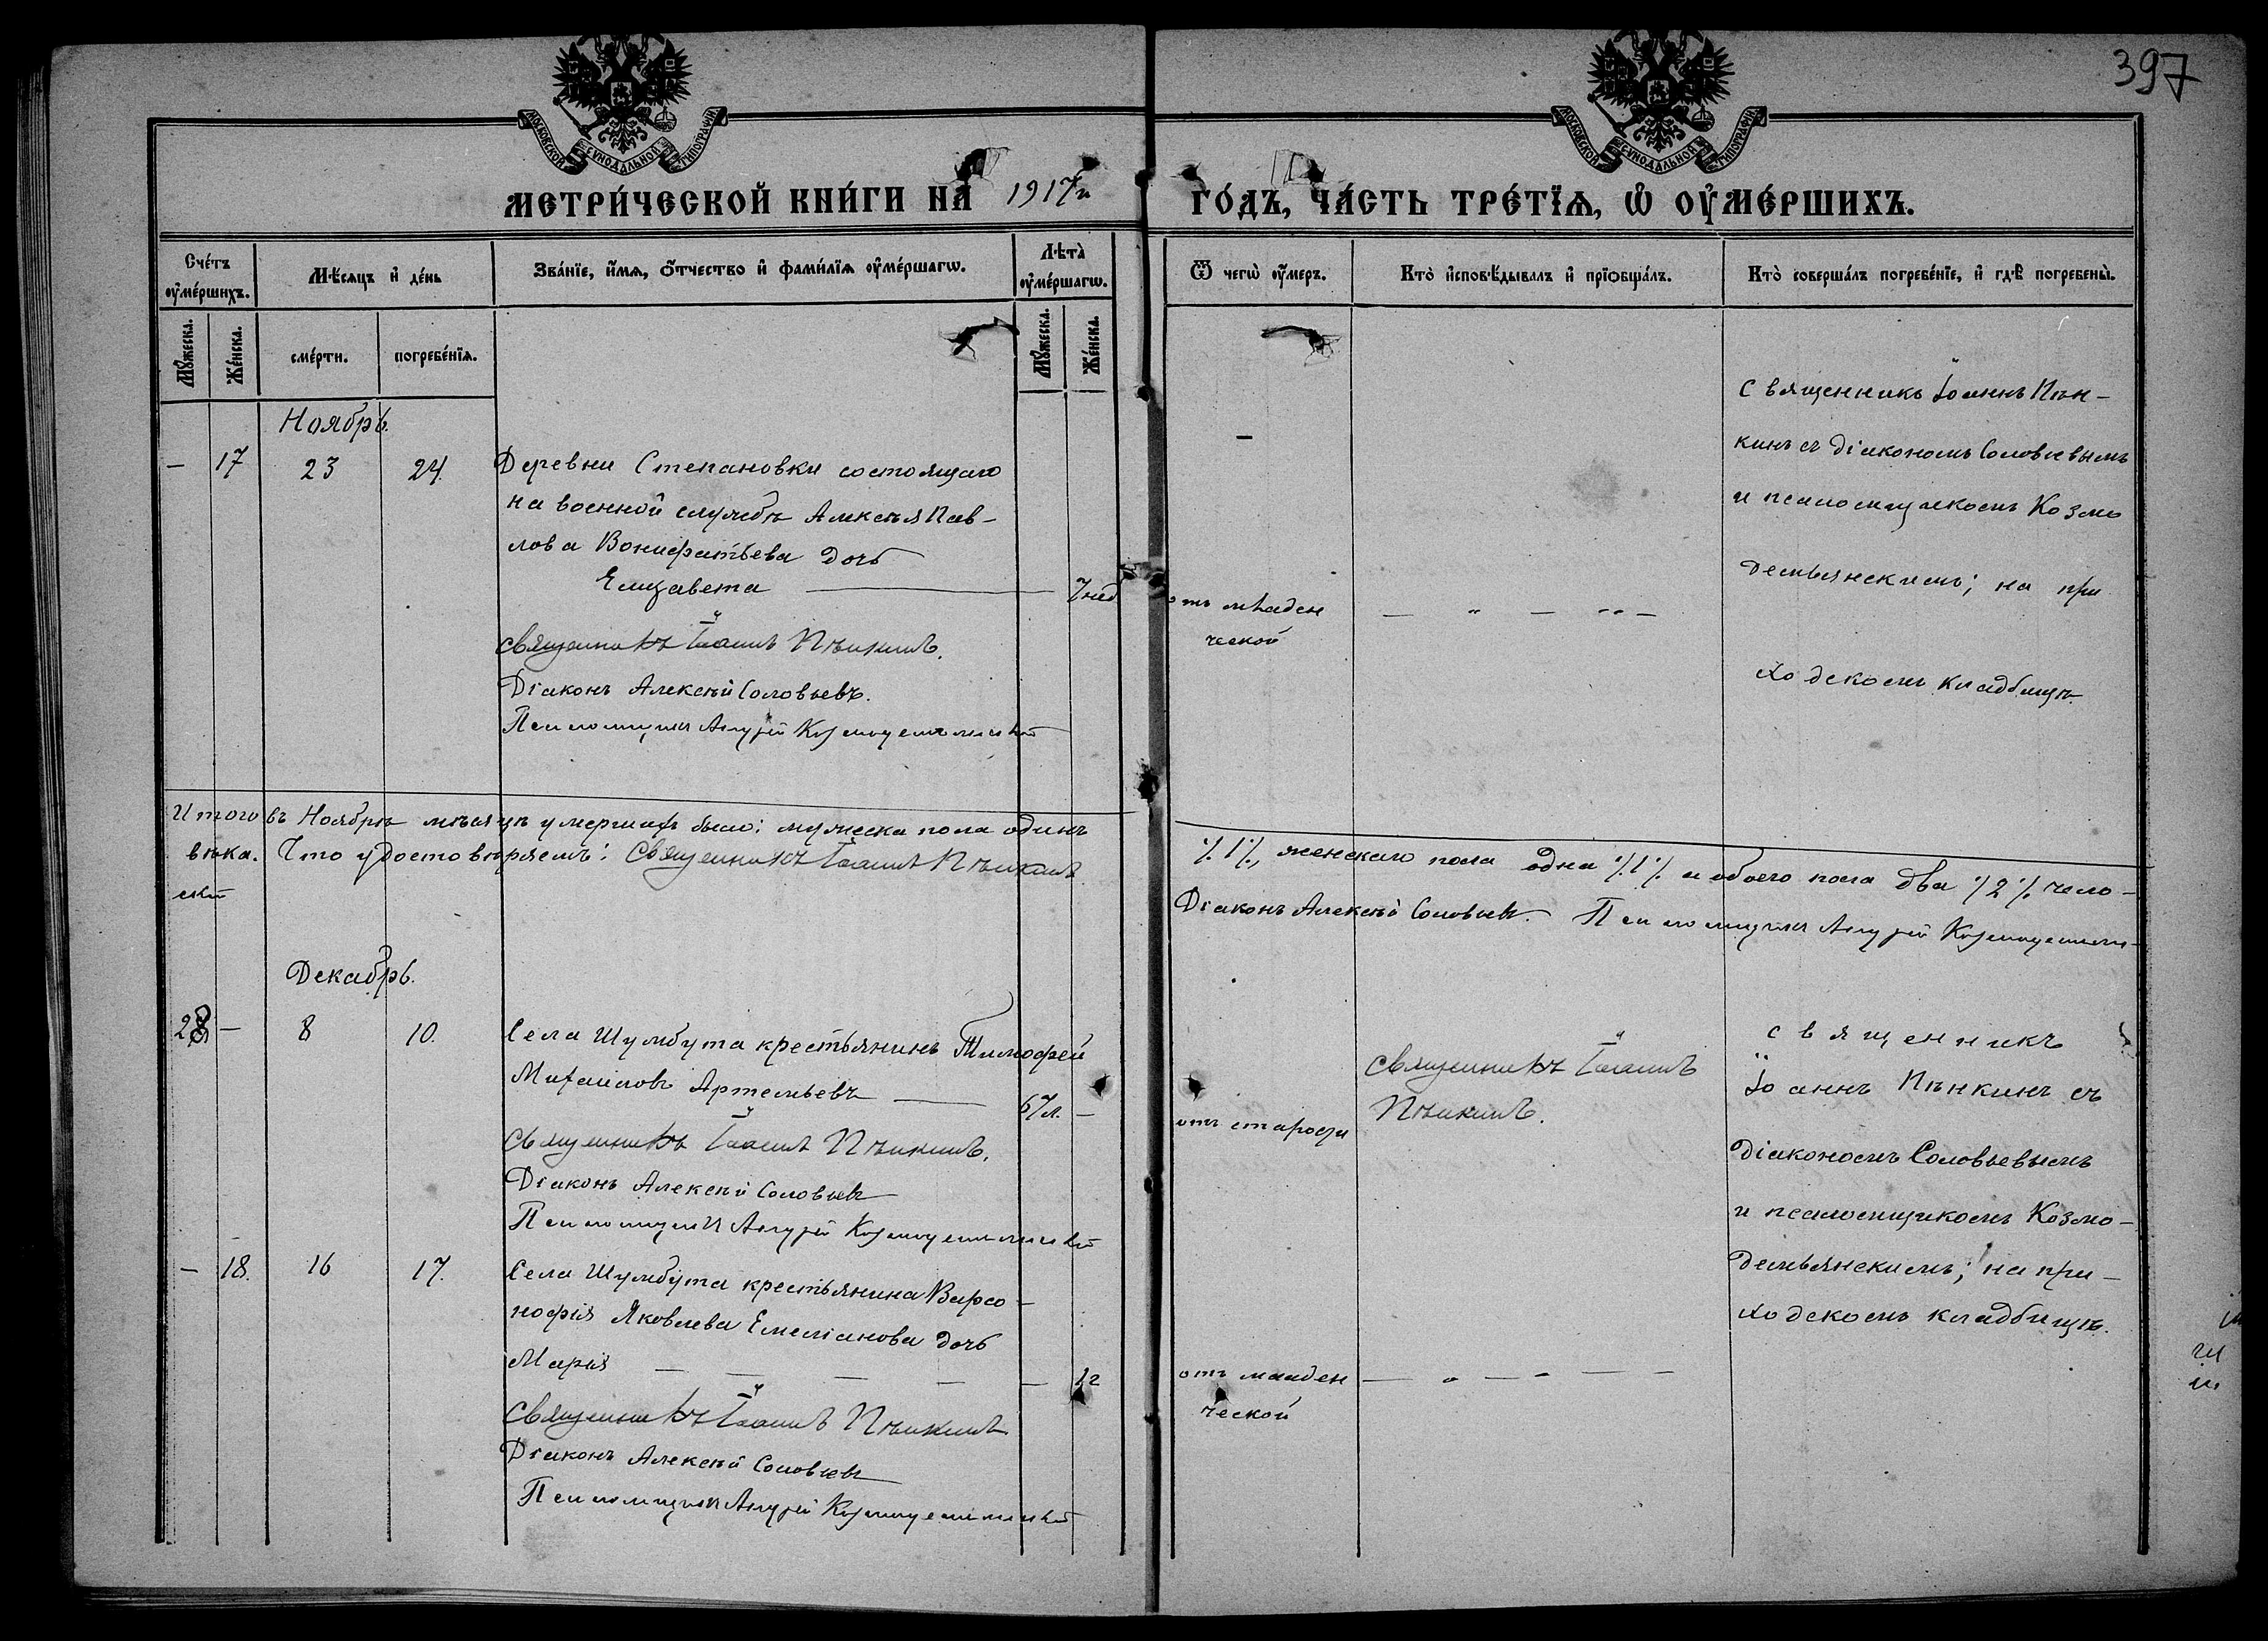 397
МОСКОВСКОЙ СѴНОДАЛЬНОЙ ТИПОГРАФІИ
МОСКОВСКОЙ СѴНОДАЛЬНОЙ ТИПОГРАФІИ
МЕТРИ́ЧЕСКОЙ КНИ́ГИ НА 1917й
ГО́ДЪ, ЧА́СТЬ ТРЕ́ТЇѦ, Ѡ ОУ҆МЕ́РШИХЪ.
Сче́тъ оу҆ме́ршихъ.
Мꙋ́жеска.
Же́нска.
Мѣ́сѧцъ и҆ де́нь
сме́рти.
погребе́нїѧ.
Зва́нїе, и҆́мѧ, ѻ҆́тчество и҆ фами́лїѧ оу҆ме́ршагѡ.
Лѣ́та оу҆ме́ршагѡ.
Мꙋ́жеска.
Же́нска.
Ѿ чегѡ̀ оу҆́меръ.
Кто̀ и҆сповѣ́дывалъ и҆ прїѻбща́лъ.
Кто̀ соверша́лъ погребе́нїе, и҆ гдѣ̀ погребены̀.
Ноябрь.
— 17 23 24.
Деревни Степановки состоящаго
на военной службѣ Алексѣя Пав-
лова Вонифатьева дочь
Елизавета — 7 нед
отъ младен
ческой
Священникъ Іоаннъ Пѣнкинъ.
Діаконъ Алексѣй Соловьевъ.
Псаломщикъ Андрей Козмодемьянскій
Священникъ Іоаннъ Пѣн-
кинъ съ діакономъ Соловьевымъ
и псаломщикомъ Козмо
демьянскимъ; на при
ходскомъ кладбищѣ.
Итого въ Ноябрѣ мѣсяцѣ умершихъ было: мужеска пола одинъ
/.1/., женскаго пола одна /.1/. и обоего пола два /2/. чело-
вѣка. Что удостовѣряемъ: Священникъ Іоаннъ Пѣнкинъ
Діаконъ Алексѣй Соловьевъ. Псаломщикъ Андрей Козмодемьян-
скій
Декабрь.
28 — 8 10.
Села Шумбута крестьянинъ Тимофей
Михаиловъ Артемьевъ — 67 л. —
отъ старости
Священникъ Іоаннъ
Пѣнкинъ.
Священникъ Іоаннъ Пѣнкинъ.
Діаконъ Алексѣй Соловьевъ
Псаломщикъ Андрей Козмодемьянскій
священникъ
Іоаннъ Пѣнкинъ съ
діакономъ Соловьевымъ
и псаломщикомъ Козмо-
демьянскимъ; на при-
ходскомъ кладбищѣ.
— 18. 16 17.
Села Шумбута крестьянина Варсо-
нофія Яковлева Емеліанова дочь
Марія —
отъ младен
ческой
Священникъ Іоаннъ Пѣнкинъ
Діаконъ Алексѣй Соловьевъ
Псаломщикъ Андрей Козмодемьянскій